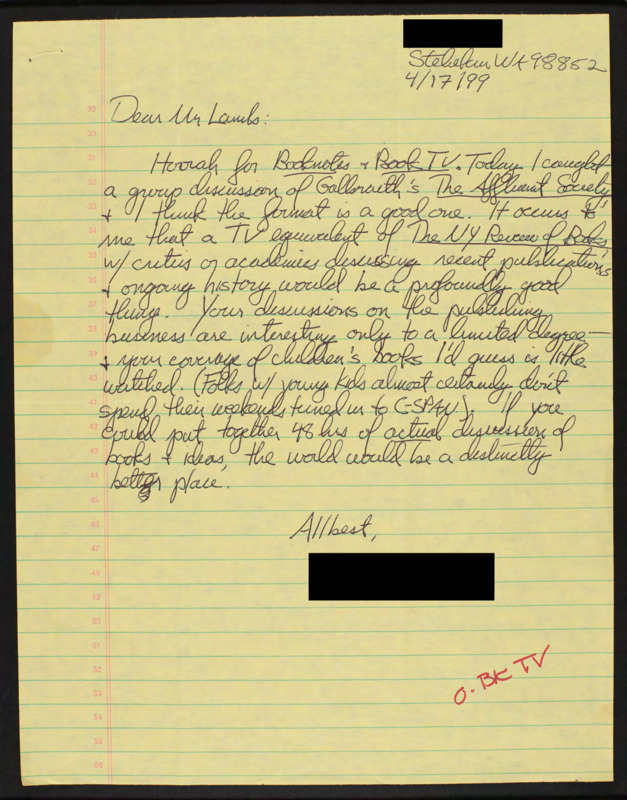 Stehekin WA 98852
4/17/99
Dear Mr Lamb:
Hoorah for Booknotes + Book TV. Today I caught
a group discussion of Galbraith's The Affluent Society
+ I think the format is a good one. It occurs to
me that a TV equivalent of The NY Review of Books
w/ critics or academics discussing recent publications
+ ongoing history would be a profoundly good
thing. Your discussions on the publishing
business are interesting only to a limited degree—
+ your coverage of children's books I'd guess is little
watched. (Folks w/ young kids almost certainly don't
spend their weekends tuned in to C-SPAN). If you
could put together 48 hrs of actual discussion of
books + ideas, the world would be a distinctly
better place.
All best,
O-BK TV
29
30
31
32
33
34
35
36
37
38
39
40
41
42
43
44
45
46
47
48
49
50
51
52
53
54
55
56